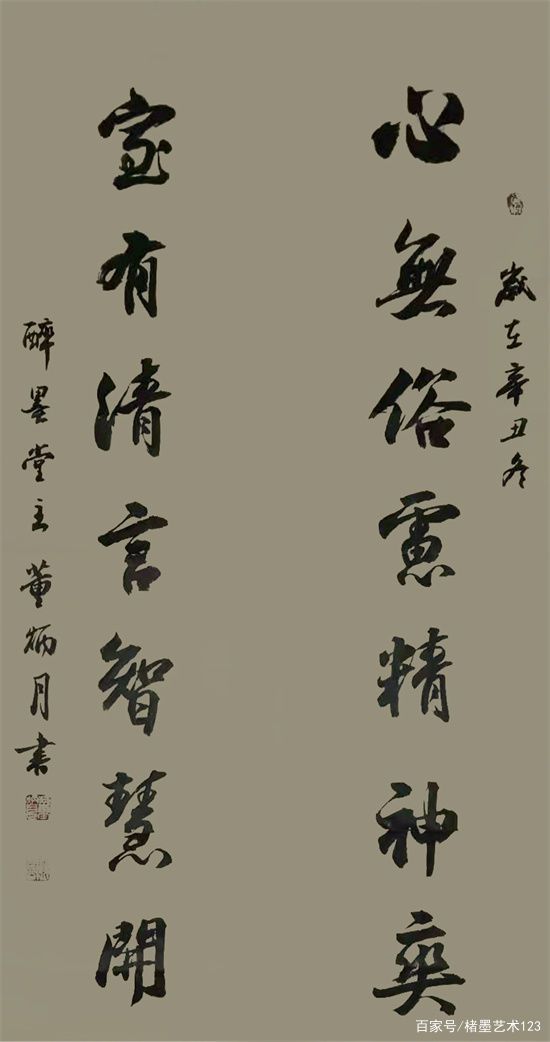 歲在辛丑冬
心無俗慮精神爽
室有清言智慧開
醉墨堂主董炳月書
百家号/楮墨艺术123